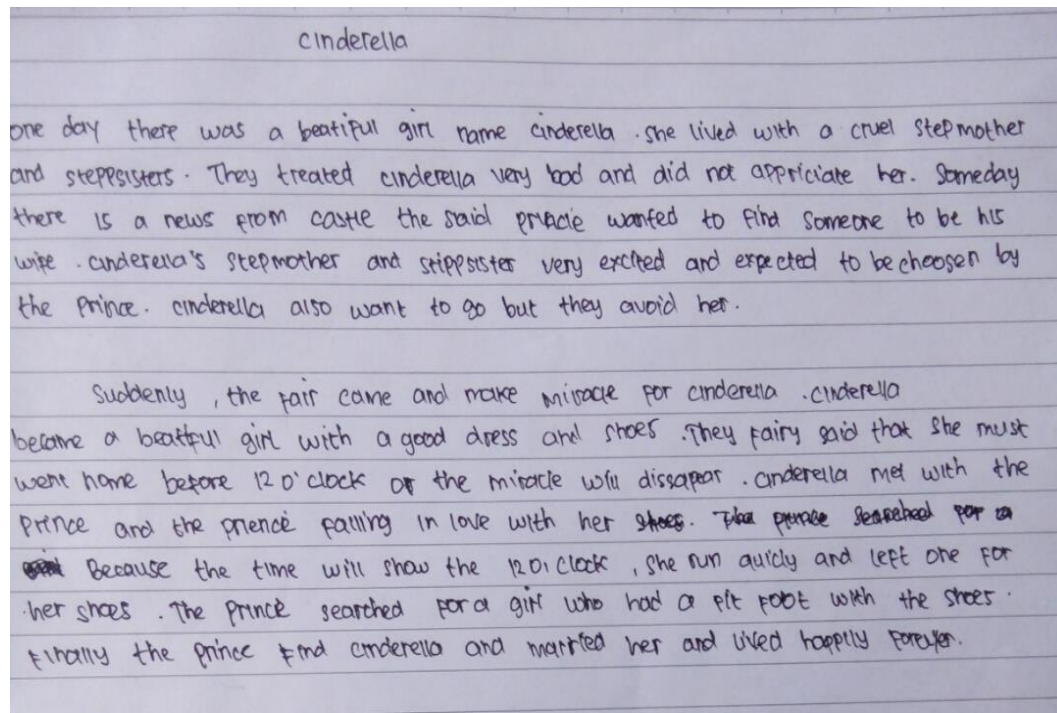 cinderella
one day there was a beatiful girl name cinderella . she lived with a cruel stepmother
and steppsisters . They treated cinderella very bad and did not appriciate her . Someday
there is a news from castle the said prince wanted to find someone to be his
wife . cinderella's stepmother and stippsister very excited and expected to be choosen by
the prince . cinderella also want to go but they avoid her .
Suddenly , the fair came and make miracle for cinderella . cinderella
became a beatiful girl with a good dress and shoes . They fairy said that she must
went home before 12 o'clock or the miracle will dissapear . cinderella met with the
prince and the prience falling in love with her shoes . The prince searched for a
Because the time will show the 12 O' clock , she run quicly and left one for
her shoes . The prince searched for a girl who had a fit foot with the shoes .
Finally the prince find cinderella and married her and lived happily forever .